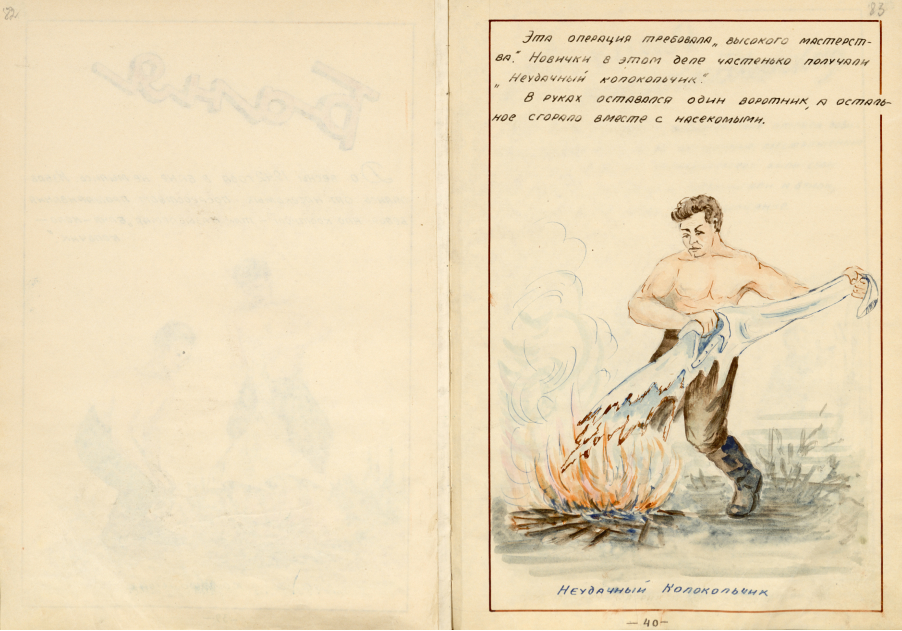 82
83
Эта операция требовала „высокого мастерст-
ва". Новички в этом деле частенько получали
„Неудачный колокольчик".
В руках оставался один воротник, а осталь-
ное сгорало вместе с насекомыми.
Неудачный Колокольчик
— 40 —